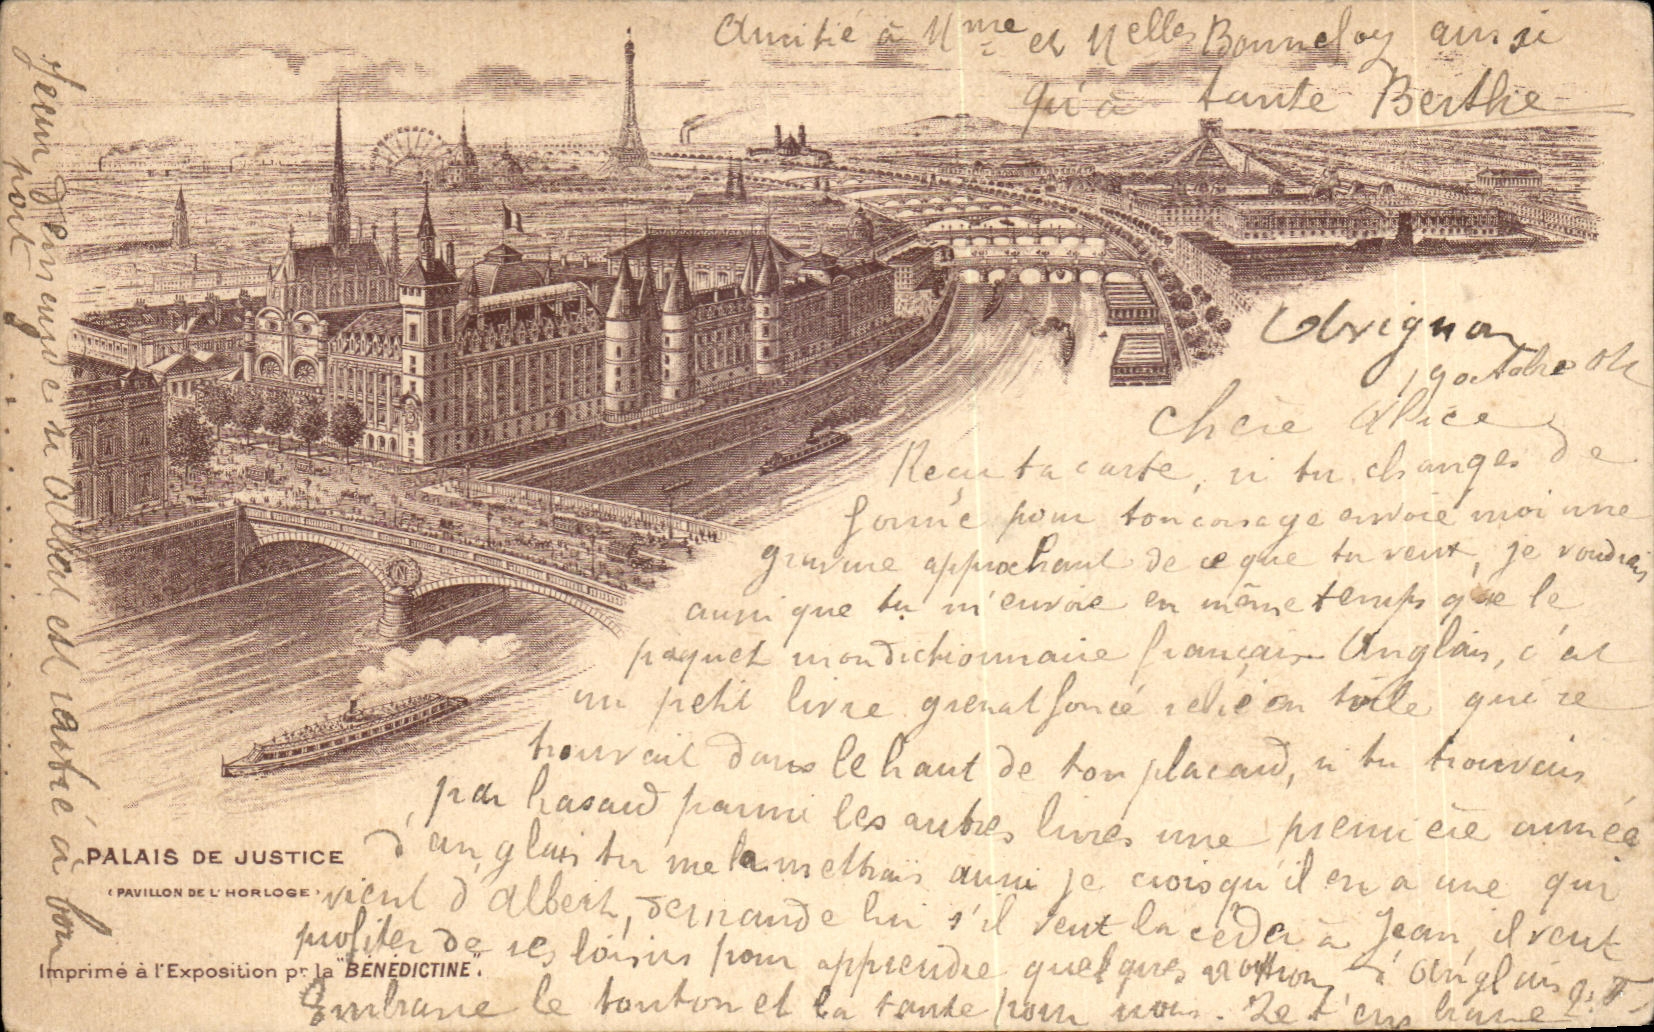 Amitié à Mme et Melles Bonneloy aussi
qu'à tante Berthe
Avignon
19 octobre 04
Chère Alice
Reçu ta carte, si tu changes de
forme pour ton corsage envoie moi une
gravure approchant de ce que tu veux, je voudrais
aussi que tu m'envoie en même temps que le
paquet mon dictionnaire français Anglais, c'est
un petit livre grenat foncé relié en toile qui se
trouvait dans le haut de ton placard, si tu trouvais
par hasard parmi les autres livres une première année
d'anglais tu me la mettrais aussi je crois qu'il en a une qui
vient d'Albert, demande lui s'il veut la céder à Jean, il veut
profiter de ses loisirs pour apprendre quelques notions d'Anglais
Embrasse le tonton et la tante pour nous. Je t'embrasse J. F
Jean d'Annecy Albert est arrivé à bon
port
PALAIS DE JUSTICE
(PAVILLON DE L'HORLOGE)
Imprimé à l'Exposition pr la "BÉNÉDICTINE".
N